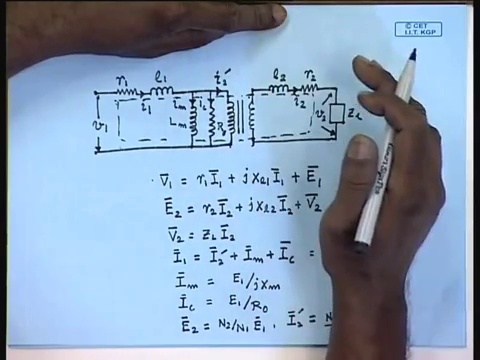 © CET
I.I.T. KGP
r₁ l₁ i₂′ l₂ r₂
v₁ i₁ i_m i_c L_m R₀ i₂ v₂ Z_L
V̅₁ = r₁I̅₁ + jx_l1 I̅₁ + E̅₁
E̅₂ = r₂I̅₂ + jx_l2 I̅₂ + V̅₂
V̅₂ = Z_L I̅₂
I̅₁ = I̅₂′ + I̅_m + I̅_c =
I̅_m = E₁/jx_m
I̅_c = E₁/R₀
E̅₂ = N₂/N₁ E̅₁ . I̅₂′ = N